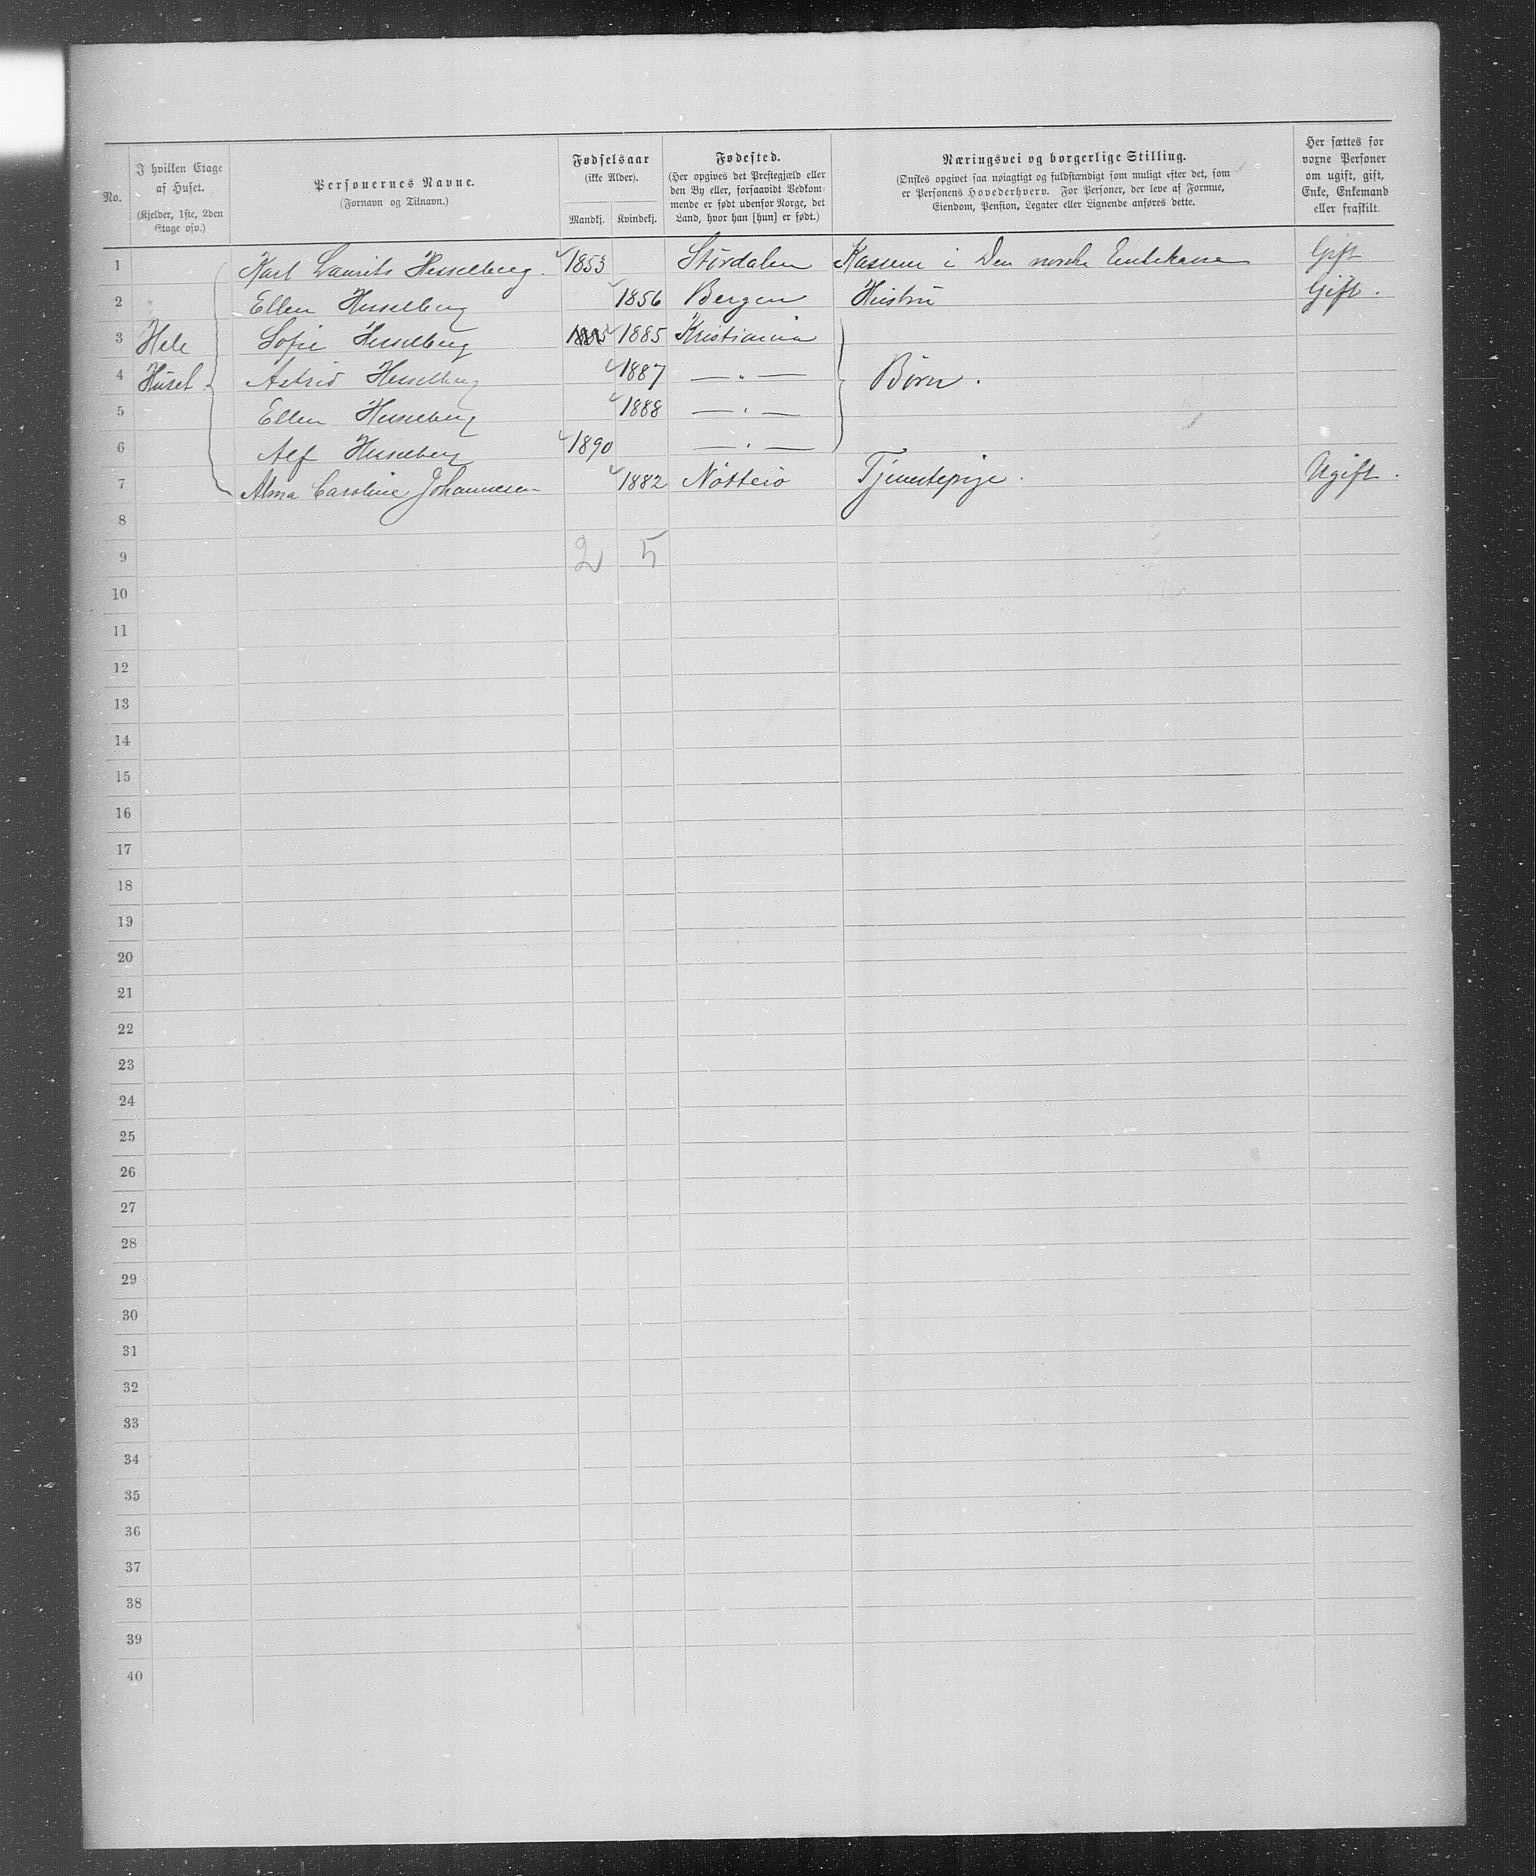 No.
I hvilken Etage af Huset.
(Kjelder, 1ste, 2den Etage osv.)
Personernes Navne.
(Fornavn og Tilnavn.)
Fødselsaar
(ikke Alder).
Mandkj. Kvindekj.
Fødested.
(Her opgives det Prestegjæld eller
den By eller, forsaavidt Vedkom-
mende er født udenfor Norge, det
Land, hvor han [hun] er født.)
Næringsvei og borgerlige Stilling.
(Ønskes opgivet saa nøiagtigt og fuldstændigt som muligt efter det, som
er Personens Hovederhverv. For Personer, der leve af Formue,
Eiendom, Pension, Legater eller Lignende anføres dette.
Her sættes for
voxne Personer
om ugift, gift,
Enke, Enkemand
eller fraskilt.
1 Karl Laurits Hesselberg. 1853 Størdalen Kasserer i Den norske Enkekasse Gift
2 Ellen Hesselberg 1856 Bergen Hustru Gift.
3 Hele Sofie Hesselberg 1885 1885 Kristiania
4 Huset. Astrid Hesselberg 1887 — " — Børn.
5 Ellen Hesselberg 1888 — " —
6 Alf Hesselberg 1890 — " —
7 Alma Caroline Johannesen 1882 Nøtterø Tjenestepige. Ugift.
8
9 2 5
10
11
12
13
14
15
16
17
18
19
20
21
22
23
24
25
26
27
28
29
30
31
32
33
34
35
36
37
38
39
40